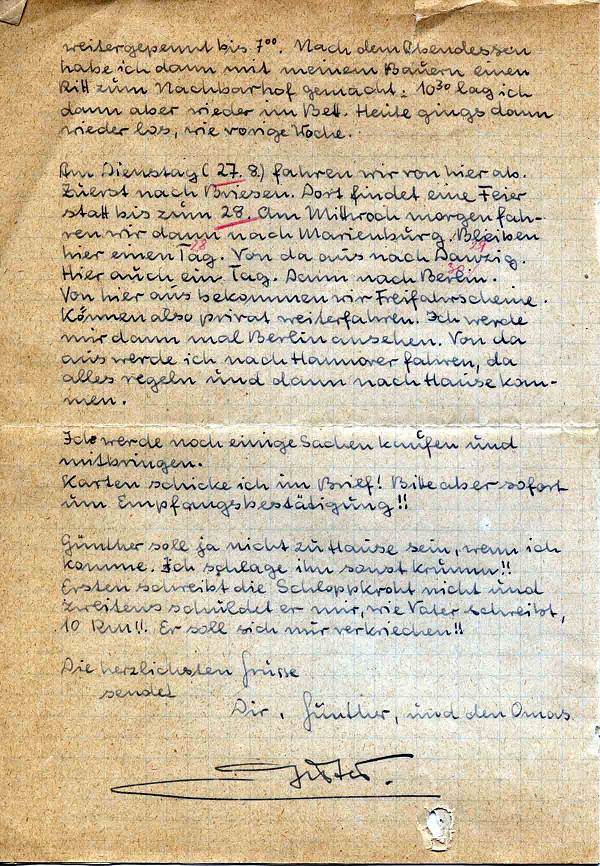 weitergepennt bis 7⁰⁰. Nach dem Abendessen
habe ich dann mit meinem Bauern einen
Ritt zum Nachbarhof gemacht. 10³⁰ lag ich
dann aber wieder im Bett. Heute gings dann
wieder los, wie vorige Woche.
Am Dienstag (27. 8.) fahren wir von hier ab.
Zuerst nach Briesen. Dort findet eine Feier
statt bis zum 28. Am Mittwoch morgen fah-
ren wir dann nach Marienburg. Bleiben
28 29
hier einen Tag. Von da aus nach Danzig.
30.
Hier auch ein Tag. Dann nach Berlin.
Von hier aus bekommen wir Freifahrscheine.
Können also privat weiterfahren. Ich werde
mir dann mal Berlin ansehen. Von da
aus werde ich nach Hannover fahren, da
alles regeln und dann nach Hause kom-
men.
Ich werde noch einige Sachen kaufen und
mitbringen.
Karten schicke ich im Brief! Bitte aber sofort
um Empfangsbestätigung!!
Günther soll ja nicht zu Hause sein, wenn ich
komme. Ich schlage ihn sonst krumm!!
Ersten schreibt die Schloppkroht nicht und
zweitens schuldet er mir, wie Vater schreibt,
10 Rm!! Er soll sich nur verkriechen!!
Die herzlichsten Grüsse
sendet
Dir, Günther, und den Omas